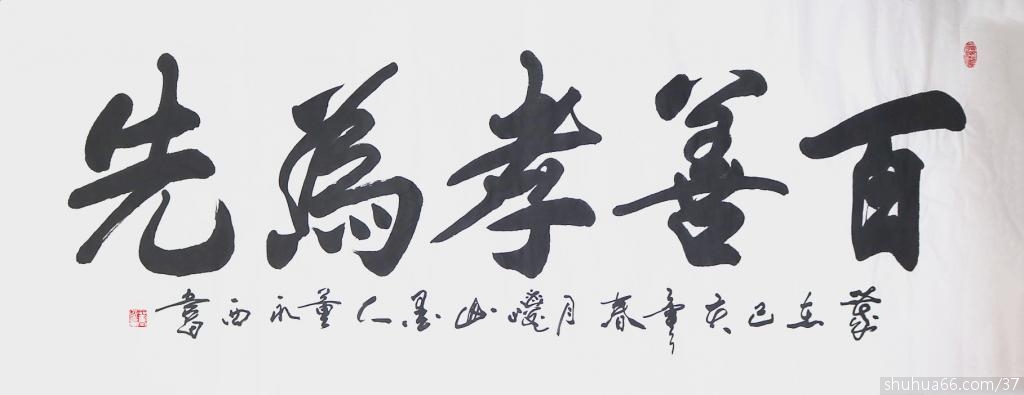 百善孝為先
歲在己亥春月山墨人董永西書
shuhua66.com/37